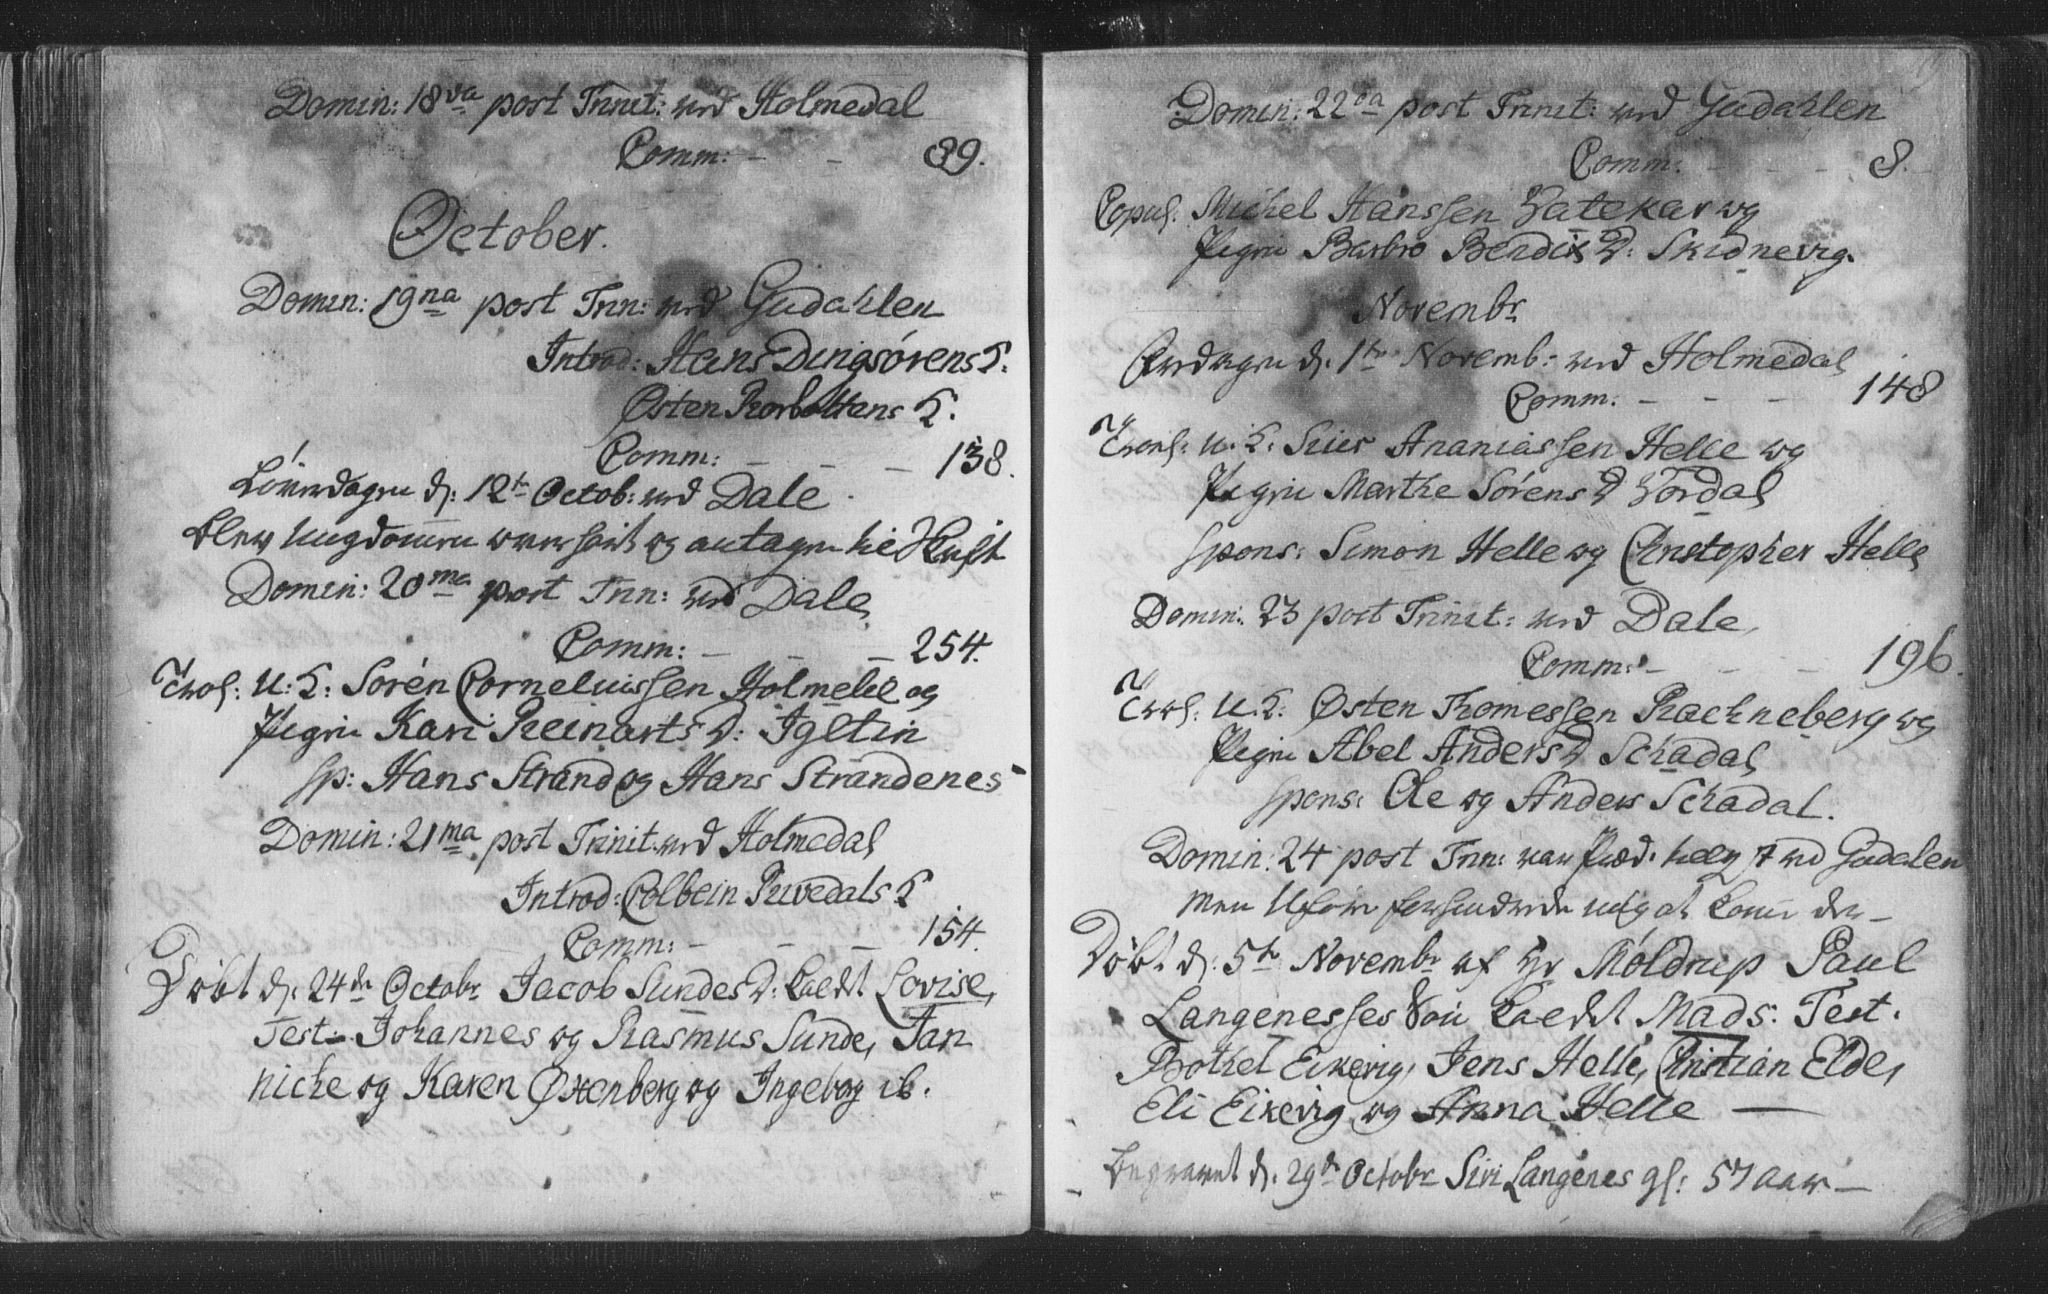 Domin: 18va post Trinit: ved Holmedal
Comm: - - 39.
October.
Domin: 19na post Trin: ved Gudahlen
Introd: Hans Dingsørens K:
Østen Korboltans K.
Comm: - - - 138.
Løverdagen d: 12te Octob: ved Dale.
blev ungdommen overhørt og antagen til Skrift
Domin: 20ma post Trin: ved Dale,
Comm: - - - 254.
Trol: U: K: Sørén Corneliussen Holmelie og
Pigen Kari Reinarts D: Igltin
Sp: Hans Strand og Hans Strandenes
Domin: 21ma post Trinit. ved Holmedal
Introd: Colbein Rivedals K
Comm: - - - 154.
Døbt d. 24de Octobr Jacob Sundes D: kaldt Lovise,
Test: Johannes og Rasmus Sunde, Jan
niche og Karen Øxenberg og Ingeborg ib.
Domin: 22da post Trinit: ved Gudahlen
Comm: - - - 8.
Copul: Michel Hanssen Vatekar og
Pigen Barbro Bendix D: Skidnevig.
Novembr
Fredagen d. 1te Novemb: ved Holmedal
Comm: - - - 148
Trol: U: K: Siver Ananiassen Helle og
Pigen Marthe Sørens D Vordal
Spons: Simon Helle og Christopher Helle
Domin: 23 post Trinit: ved Dale,
Comm: - - - 196.
Trol: U: K: Østen Thomessen Rachneberg og
Pigen Abel Anders D Schadal
Spons: Ole og Anders Schadal.
Domin: 24 post Trin: var Præd: ved Gudalen
men Uføre forhindrede mig at komme der -
Døbt d. 5te Novembr af Hr Møldrup Paul
Langenesses Søn kaldt Mads. Test.
Bothel Eikevig, Jens Helle, Christian Elde,
Eli Eikevig og Anna Helle -
begravet d. 29de Octobr Siri Langenes gl: 57 aar -